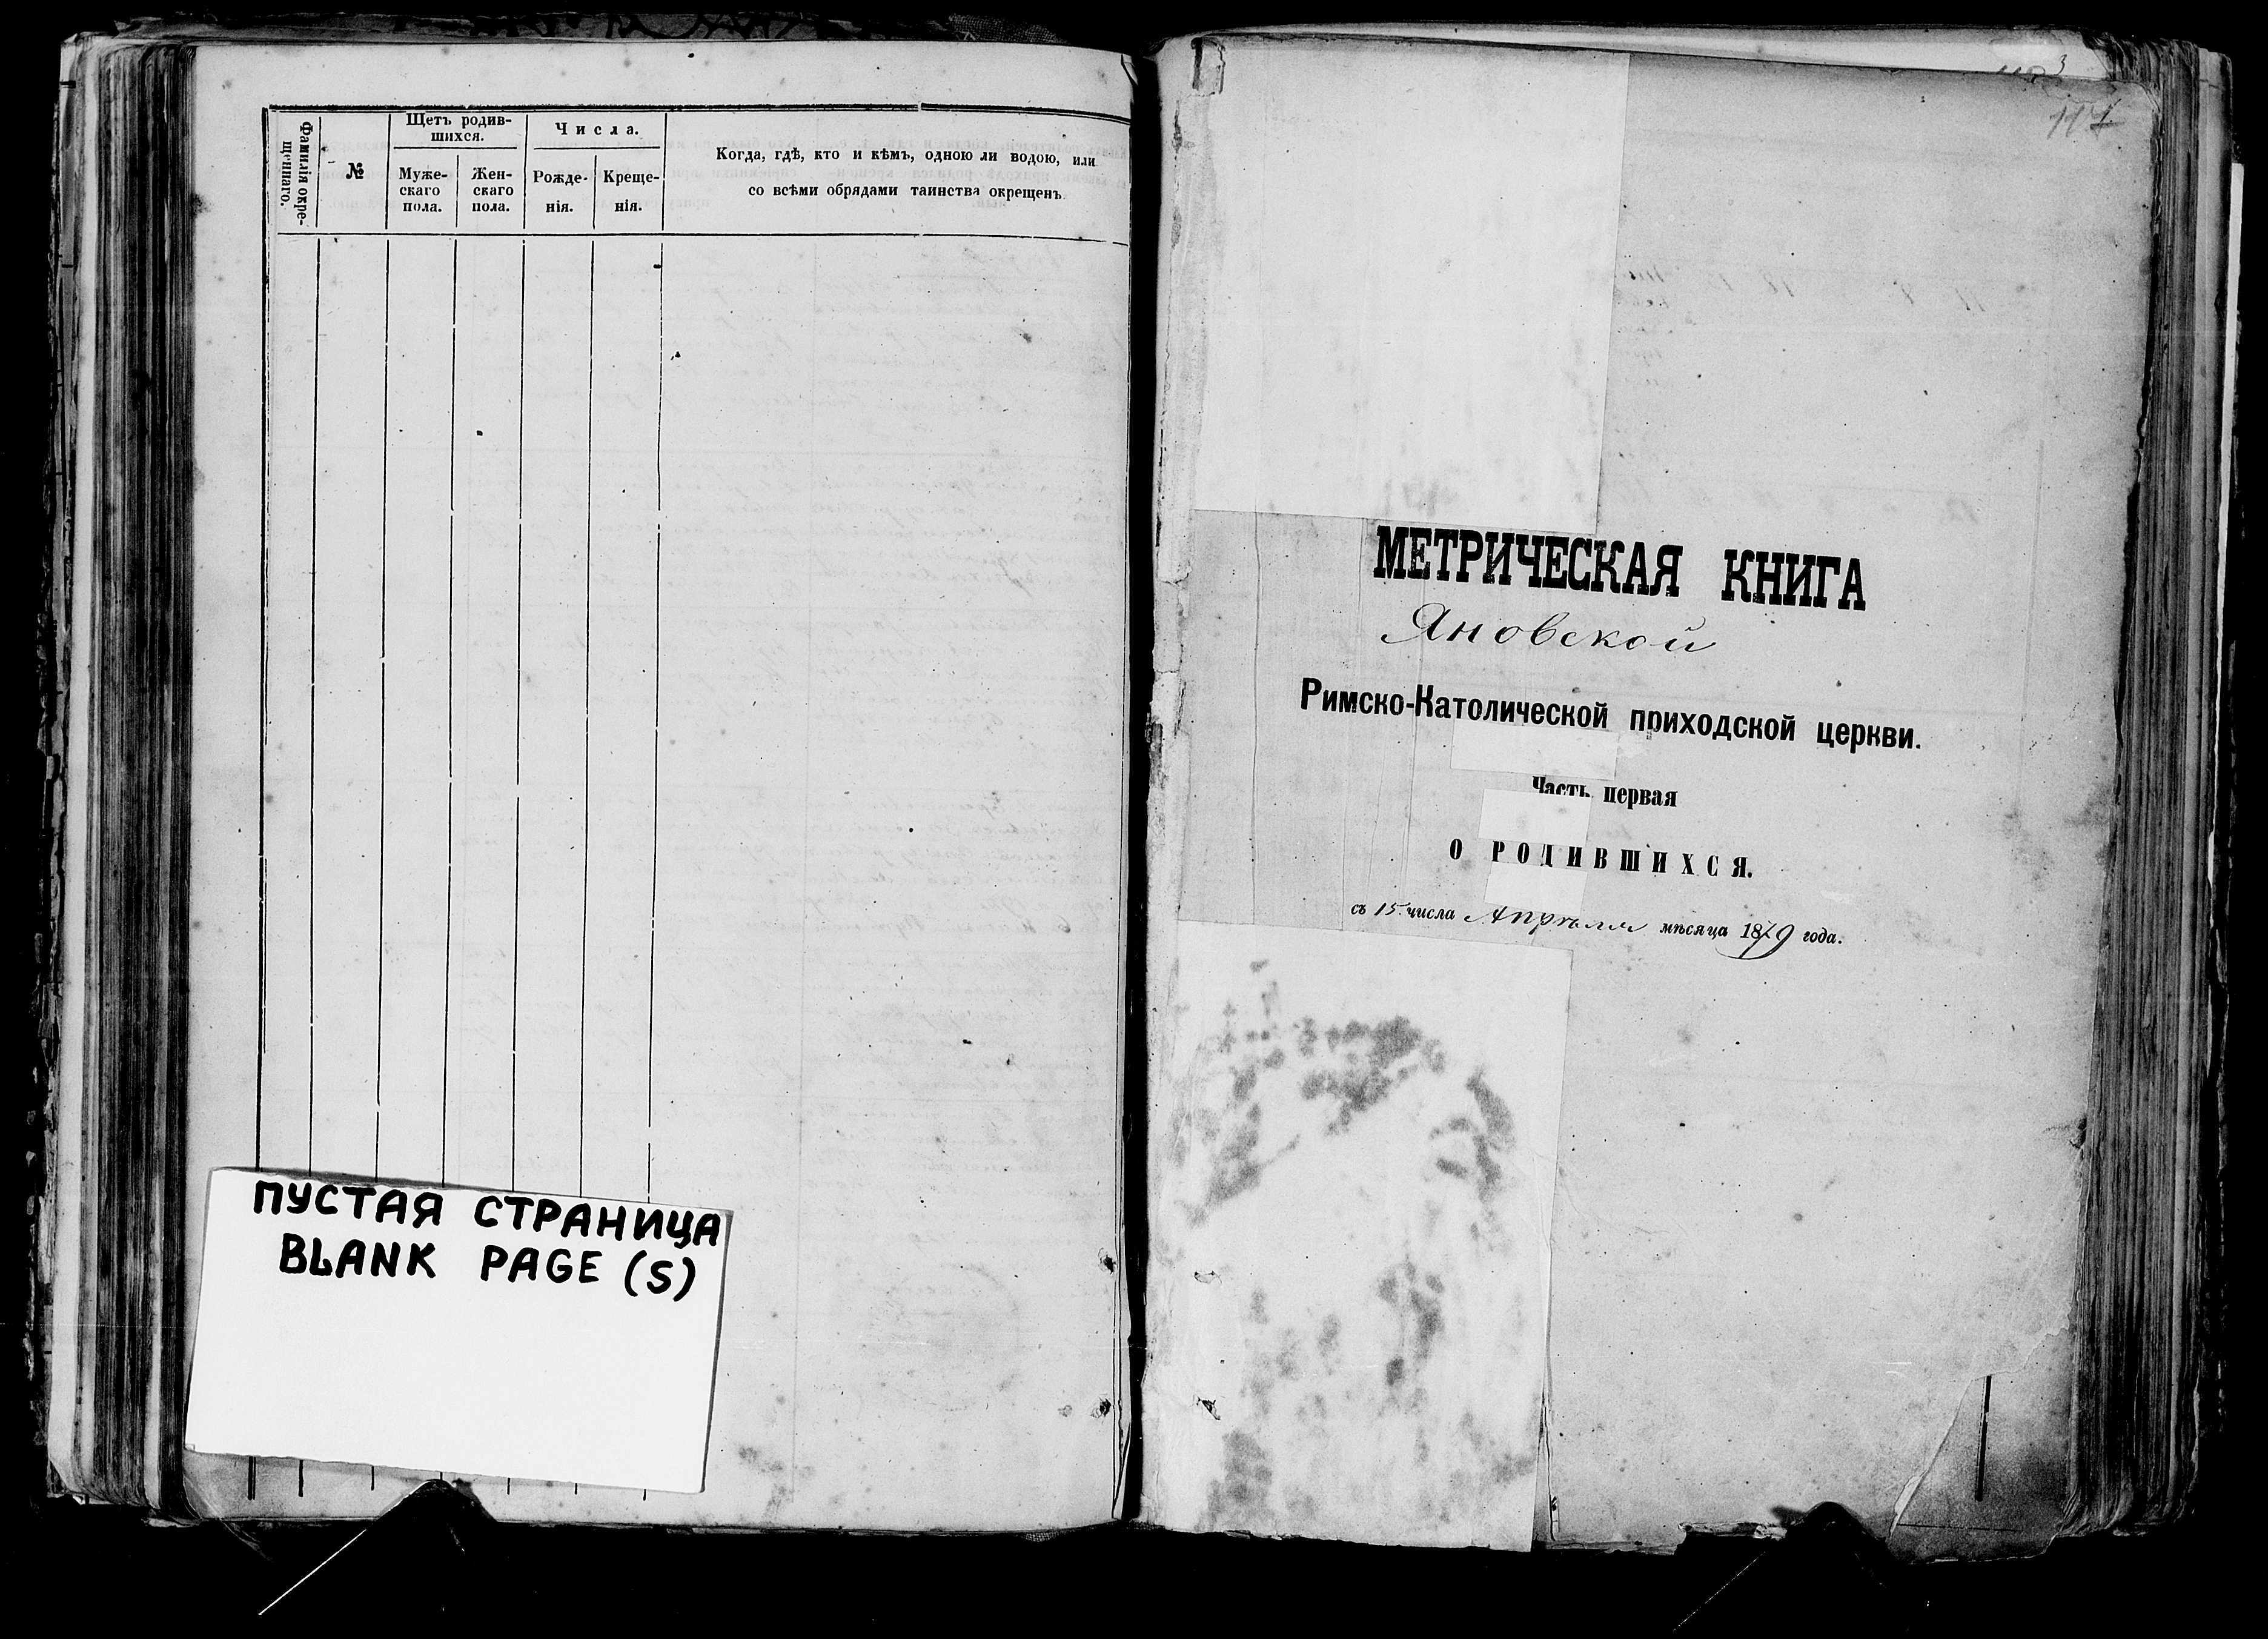 Фамилія окре-
щеннаго.
№
Щетъ родив-
шихся.
Муже-
скаго
пола.
Жен-
скаго
пола.
Числа.
Рожде-
нія.
Креще-
нія.
Когда, гдѣ, кто и кѣмъ, одною ли водою, или
со всѣми обрядами таинства окрещенъ.
ПУСТАЯ СТРАНИЦА
BLANK PAGE (S)
МЕТРИЧЕСКАЯ КНИГА
Яновской
Римско-Католической приходской церкви.
Часть первая
О РОДИВШИХСЯ.
съ 15 числа Апрѣля мѣсяца 1879 года.